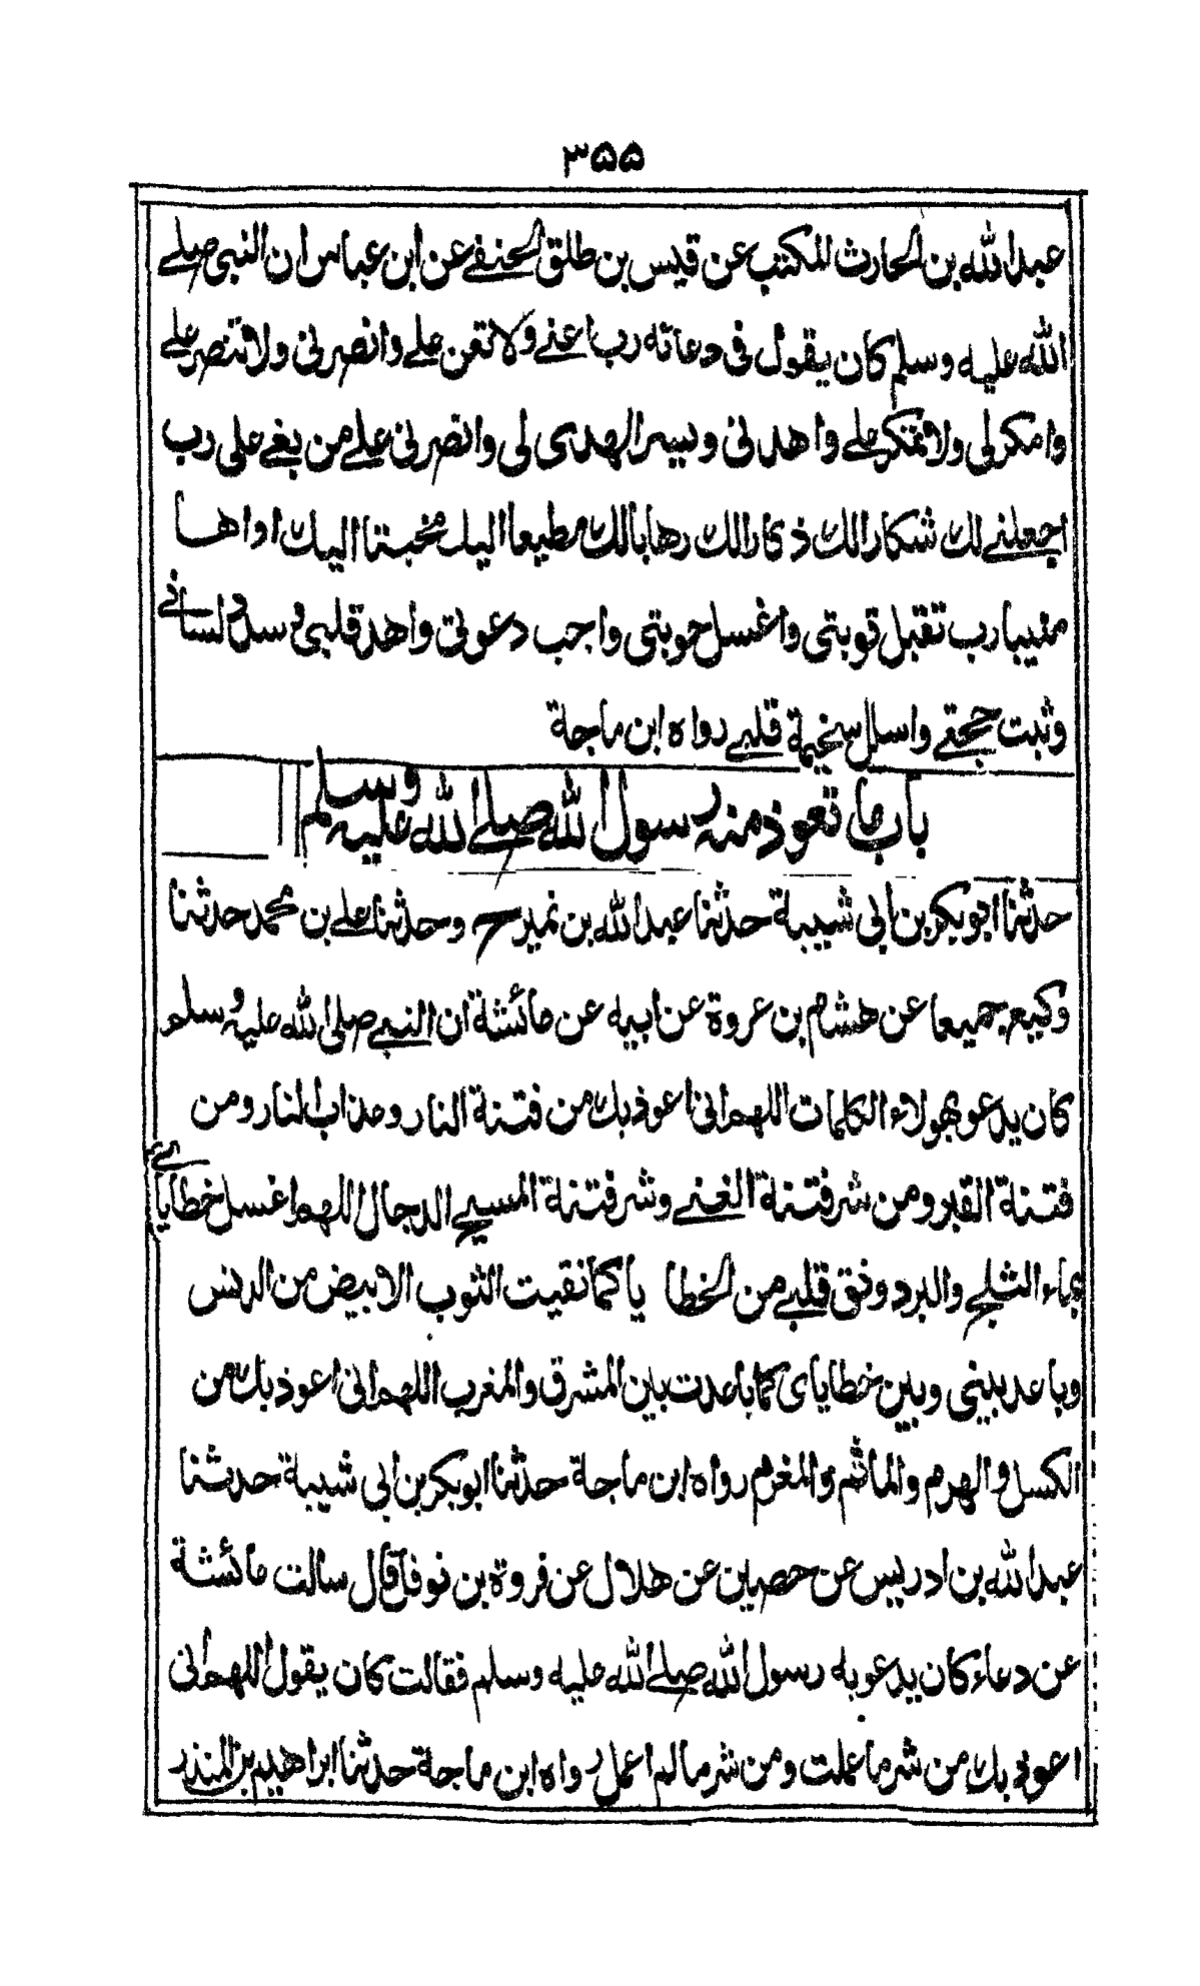 ۳۵۵
عبد الله بن الحارث المكتب عن قيس بن طلق الحنفي عن ابن عباس ان النبي صلى
الله عليه وسلم كان يقول في دعائه رب اعني ولا تعن علي وانصرني ولا تنصر علي
وامكر لي ولا تمكر علي واهدني ويسر الهدى لي وانصرني علي من بغي على رب
اجعلني لك شكارا لك ذكارا لك رهابا لك مطيعا اليك مخبتا اليك اواها
منيبا رب تقبل توبتي واغسل حوبتي واجب دعوتي واهد قلبي وسدد لساني
وثبت حجتي واسلل سخيمة قلبي رواه ابن ماجة
باب ما تعوذ منه رسول الله صلى الله عليه وسلم
حدثنا ابو بكر بن ابي شيبة حدثنا عبد الله بن نمير ح وحدثنا علي بن محمد حدثنا
وكيع جميعا عن هشام بن عروة عن ابيه عن عائشة ان النبي صلى الله عليه وسلم
كان يدعو بهولاء الكلمات اللهم اني اعوذ بك من فتنة النار وعذاب النار ومن
فتنة القبر ومن شر فتنة الغني وشر فتنة المسيح الدجال اللهم اغسل خطاياي
بماء الثلج والبرد ونق قلبي من الخطايا كما نقيت الثوب الابيض من الدنس
وباعد بيني وبين خطاياى كما باعدت بين المشرق والمغرب اللهم اني اعوذ بك من
الكسل والهرم والماثم والمغرم رواه ابن ماجة حدثنا ابو بكر بن ابي شيبة حدثنا
عبد الله بن ادريس عن حصين عن هلال عن فروة بن نوفل قال سالت عائشة
عن دعاء كان يدعو به رسول الله صلى الله عليه وسلم فقالت كان يقول اللهم اني
اعوذ بك من شر ما عملت ومن شر ما لم اعمل رواه ابن ماجة حدثنا ابراهيم بن المنذر